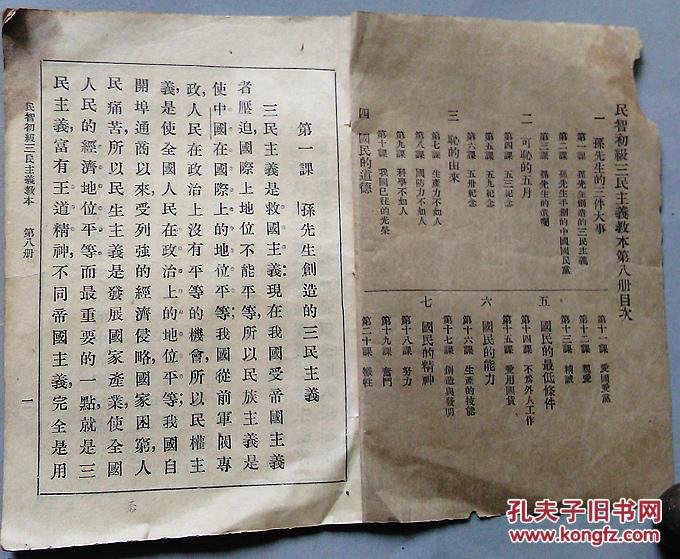 民智初級三民主義教本第八册目次
一 孫先生的三件大事
第一課 孫先生創造的三民主義
第二課 孫先生手創的中國國民黨
第三課 孫先生的遺囑
二 可恥的五月
第四課 五三記念
第五課 五九紀念
第六課 五卅紀念
三 恥的由來
第七課 生產力不如人
第八課 國防力不如人
第九課 科學不如人
第十課 我國已往的光榮
四 國民的道德
第十一課 愛國愛黨
第十二課 親愛
第十三課 精誠
五 國民的最低條件
第十四課 不為外人工作
第十五課 愛用國貨
六 國民的能力
第十六課 生產的技能
第十七課 創造與發明
七 國民的精神
第十八課 努力
第十九課 奮鬥
第二十課 犧牲
第一課 孫先生創造的三民主義
三民主義是救國主義:現在我國受帝國主義
者壓迫,國際上地位不能平等,所以民族主義是
使中國在國際上的地位平等;我國從前軍閥專
政,人民在政治上沒有平等的機會,所以民權主
義,是使全國人民在政治上的地位平等;我國自
開埠通商以來,受列強的經濟侵略,國家困窮,人
民痛苦,所以民生主義是發展國家產業,使全國
人民的經濟地位平等,而最重要的一點,就是三
民主義,富有王道精神,不同帝國主義,完全是用
民智初級三民主義教本 第八册 一
孔夫子旧书网
KONGFZ.COM